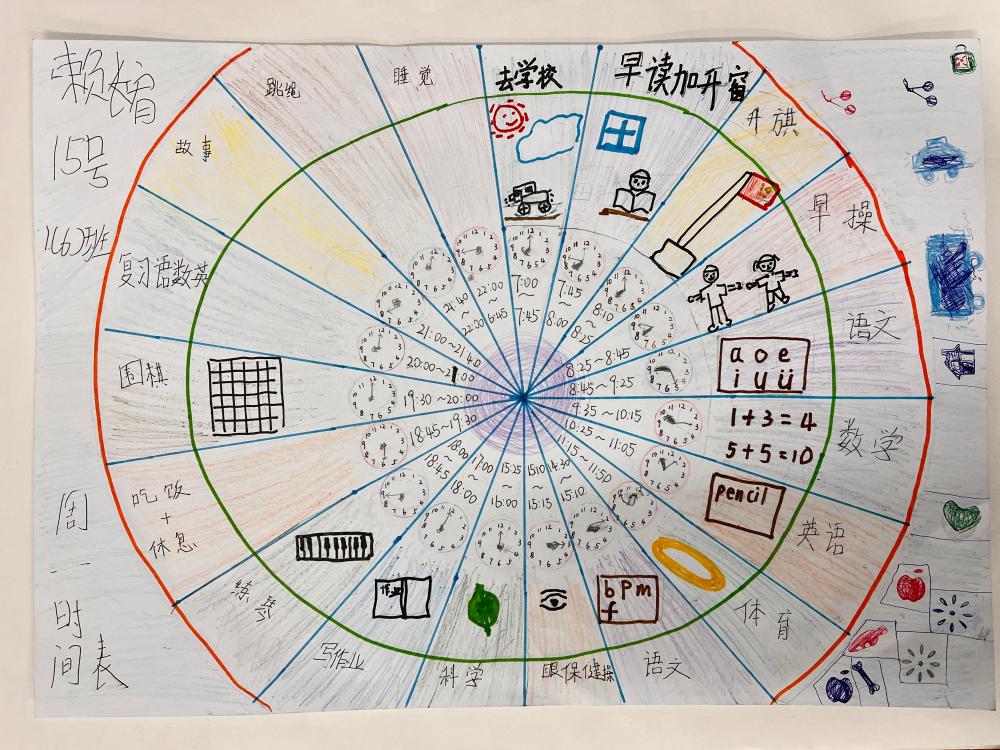 15号
1(6)班
周
一
时
间表
去学校
7:00
~
7:45
早读加开窗
7:45
~
8:00
升旗
8:10
~
8:25
早操
8:25~8:45
语文
a o e
i u ü
8:45~9:25
数学
1+3=4
5+5=10
9:35~10:15
英语
pencil
10:25~11:05
体育
11:15~11:50
语文
b p m
f
14:30
~
15:10
眼保健操
15:10
~
15:15
科学
15:25
~
16:00
写作业
作业
17:00
~
18:00
练琴
18:00
~
18:45
吃饭
+
休息
18:45~19:30
围棋
19:30~20:00
复习语数英
20:00~21:00
故事
21:00~21:40
跳绳
21:40
~
22:00
睡觉
22:00
~
6:45